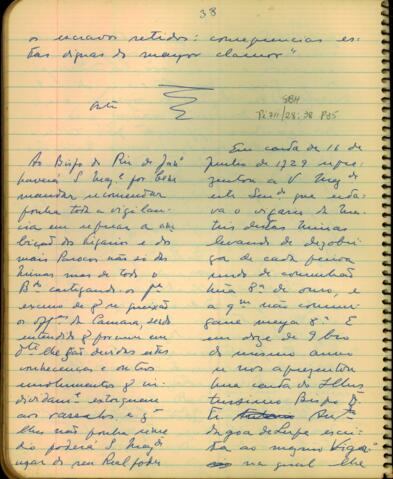 38
os escravos retidos: consequencias es-
tas dignas do mayor clamor"
SBH
Pi 711/28:38 P35
Ao Bispo do Rio de Janº
haverá S Magᵉ por bem
mandar recomendar
ponha toda a vigilan-
cia em refrear a am-
bição dos Vigarios e dos
mais Parocos não só das
Minas mas de todo o
Bᵈᵒ castigando os
excesso de q̃ se queixão
os off.ᵉˢ da Camara, sendo
entendido q̃ por
lhe são devidas estas
conhecenças e outros
emolumentos q̃
extorquem
aos vassalos e q̃
lhes não ponha reme
dio poderá S Magᵈᵉ
usar do seu Real poder
Em carta de 16 de
Junho de 1729 repre-
zentou a V Magᵈᵉ
este Senᵈᵒ que esta-
va o vigario da Ma-
tris destas Minas
levando de dezobri-
ga de cada pessoa
sendo de comunhão
hũa 8ª de ouro, e
a qᵐ não comun-
gase meya 8ª. E
em doze de 9bro
do mesmo anno
se nos aprezentou
hua carta do Illus-
trissimo Bispo D.
Fr. Antº de
Guadalupe escri-
ta ao mesmo Vigrº
na qual lhe